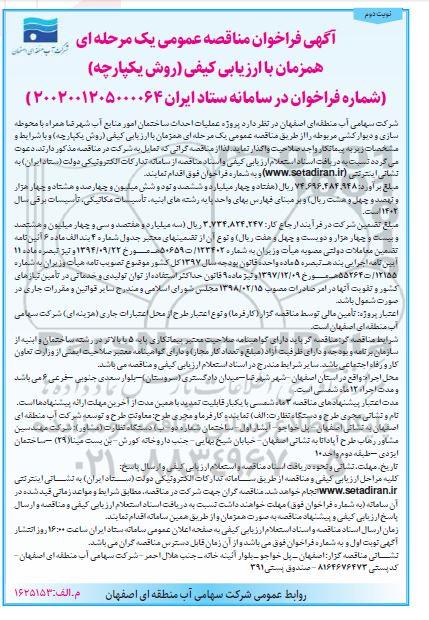 نوبت دوم
شرکت آب منطقه ای اصفهان
آگهی فراخوان مناقصه عمومی یک مرحله ای
همزمان با ارزیابی کیفی (روش یکپارچه)
(شماره فراخوان در سامانه ستاد ایران ۲۰۰۲۰۰۱۲۰۵۰۰۰۰۶۴)
شرکت سهامی آب منطقه‌ای اصفهان در نظر دارد پروژه عملیات احداث ساختمان امور منابع آب شهرضا همراه با محوطه
سازی و دیوارکشی مربوطه را از طریق مناقصه عمومی یک مرحله‌ای همزمان با ارزیابی کیفی (روش یکپارچه) و با شرایط و
مشخصات زیر به پیمانکار واجد صلاحیت واگذار نماید. لذا از مناقصه گرانی که تمایل به شرکت در مناقصه مذکور دارند، دعوت
می گردد نسبت به دریافت اسناد استعلام ارزیابی کیفی و اسناد مناقصه از سامانه تدارکات الکترونیکی دولت (ستاد ایران) به
نشانی اینترنتی (www.setadiran.ir) و به شماره فراخوان فوق اقدام نمایند.
مبلغ برآورد: ۷۴,۶۹۶,۴۸۴,۹۴۸ ریال (هفتاد و چهار میلیارد و ششصد و نود و شش میلیون و چهارصد و هشتاد و چهار هزار
و نهصد و چهل و هشت ریال) و بر مبنای فهارس بهای واحد پایه رشته های ابنیه، تأسیسات مکانیکی، تأسیسات برقی سال
۱۴۰۲ است.
مبلغ تضمین شرکت در فرآیند ارجاع کار: ۳,۷۳۴,۸۲۴,۲۴۷ ریال (سه میلیارد و هفتصد و سی و چهار میلیون و هشتصد
و بیست و چهار هزار و دویست و چهل و هفت ریال) و نوع آن از تضمینهای معتبر جدول شماره ۴ بند الف ماده ۶ آئین نامه
تضمین معاملات دولتی مصوبه هیأت وزیران به شماره ۱۲۳۴۰۲/ت۵۰۶۵۹هـ مورخ ۱۳۹۴/۰۹/۲۲ و نیز تبصره ماده ۱۱
آیین نامه اجرایی بند هـ تبصره ۵ ماده واحده قانون بودجه سال ۱۳۹۷ کل کشور موضوع تصویب نامه هیأت وزیران به شماره
۱۲۱۵۵/ت۵۵۲۶۴هـ مورخ ۱۳۹۷/۱۲/۰۹ و نیز ماده ۹ قانون حداکثر استفاده از توان تولیدی و خدماتی در تأمین نیازهای
کشور و تقویت آنها در امر صادرات مصوب ۱۳۹۸/۰۲/۱۵ مجلس شورای اسلامی و مندرج سایر قوانین و مقررات جاری در
صورت شمول باشد.
اعتبار پروژه: تأمین مالی توسط مناقصه گزار (کارفرما) و نوع اعتبار طرح از محل اعتبارات جاری (هزینه ای) شرکت سهامی
آب منطقه ای اصفهان است.
شرایط مناقصه گر: مناقصه گر باید دارای گواهینامه صلاحیت معتبر پیمانکاری پایه ۵ یا بالاتر در رشته ساختمان و ابنیه از
سازمان برنامه و بودجه و دارای ظرفیت آزاد (مبلغ و تعداد کار مجاز) و دارای گواهینامه معتبر صلاحیت ایمنی از وزارت تعاون
کار و رفاه اجتماعی باشد. سایر شرایط مندرج در اسناد استعلام ارزیابی کیفی و مناقصه می باشد.
محل اجرا: واقع در استان اصفهان – شهر شهرضا – میدان دادگستری (سروستان) – بلوار سعدی جنوبی – فرعی ۶ می باشد
و مدت اجرا: ۱۲ ماه شمسی است.
مدت اعتبار پیشنهادهای مناقصه ۳ ماه شمسی با یکبار قابلیت تمدید با همین مدت از آخرین مهلت ارائه پیشنهادها است.
نام و نشانی مجری طرح و دستگاه نظارت: الف) نماینده کارفرما و مجری طرح: معاونت طرح و توسعه شرکت آب منطقه ای
اصفهان به نشانی اصفهان – پل خواجو – آبشار اول – ساختمان شماره دو ب) دستگاه نظارت (مشاور): شرکت مهندسین
مشاور رهاب طرح آپادانا به نشانی اصفهان – خیابان شیخ بهایی – جنب داروخانه کورش – بن بست مینا (۲۹) – ساختمان
ایزدی – طبقه دوم واحد ۱۰
تاریخ، مهلت، نشانی و نحوه دریافت اسناد مناقصه و استعلام ارزیابی کیفی و ارسال پاسخ:
کلیه مراحل ارزیابی کیفی و مناقصه از طریق سامانه تدارکات الکترونیکی دولت (ستاد ایران) به نشانی اینترنتی
www.setadiran.ir انجام خواهد شد. مناقصه گران جهت شرکت در مناقصه، مطابق شرایط و مواعد زمانی قید شده در
آن سامانه (به شماره فراخوان فوق) مهلت خواهند داشت نسبت به دریافت اسناد استعلام ارزیابی کیفی و مناقصه و ارسال
پاسخ ارزیابی کیفی و پیشنهاد مناقصه به صورت همزمان و از طریق همین سامانه اقدام نمایند.
زمان ارسال اسناد مناقصه و اسناد استعلام ارزیابی کیفی به صفحه اعلان عمومی سامانه ستاد ایران ساعت ۱۶:۰۰ روز انتشار
آگهی نوبت اول و به شماره فراخوان فوق می باشد و از آن زمان قابل دسترس مناقصه گران می باشد.
نشانی مناقصه گزار: اصفهان – پل خواجو – بلوار آئینه خانه – جنب هلال احمر – شرکت سهامی آب منطقه ای اصفهان –
کد پستی ۸۱۶۴۶۷۶۴۷۳ – صندوق پستی ۳۹۱
روابط عمومی شرکت سهامی آب منطقه ای اصفهان
م.الف: ۱۶۲۵۱۵۳